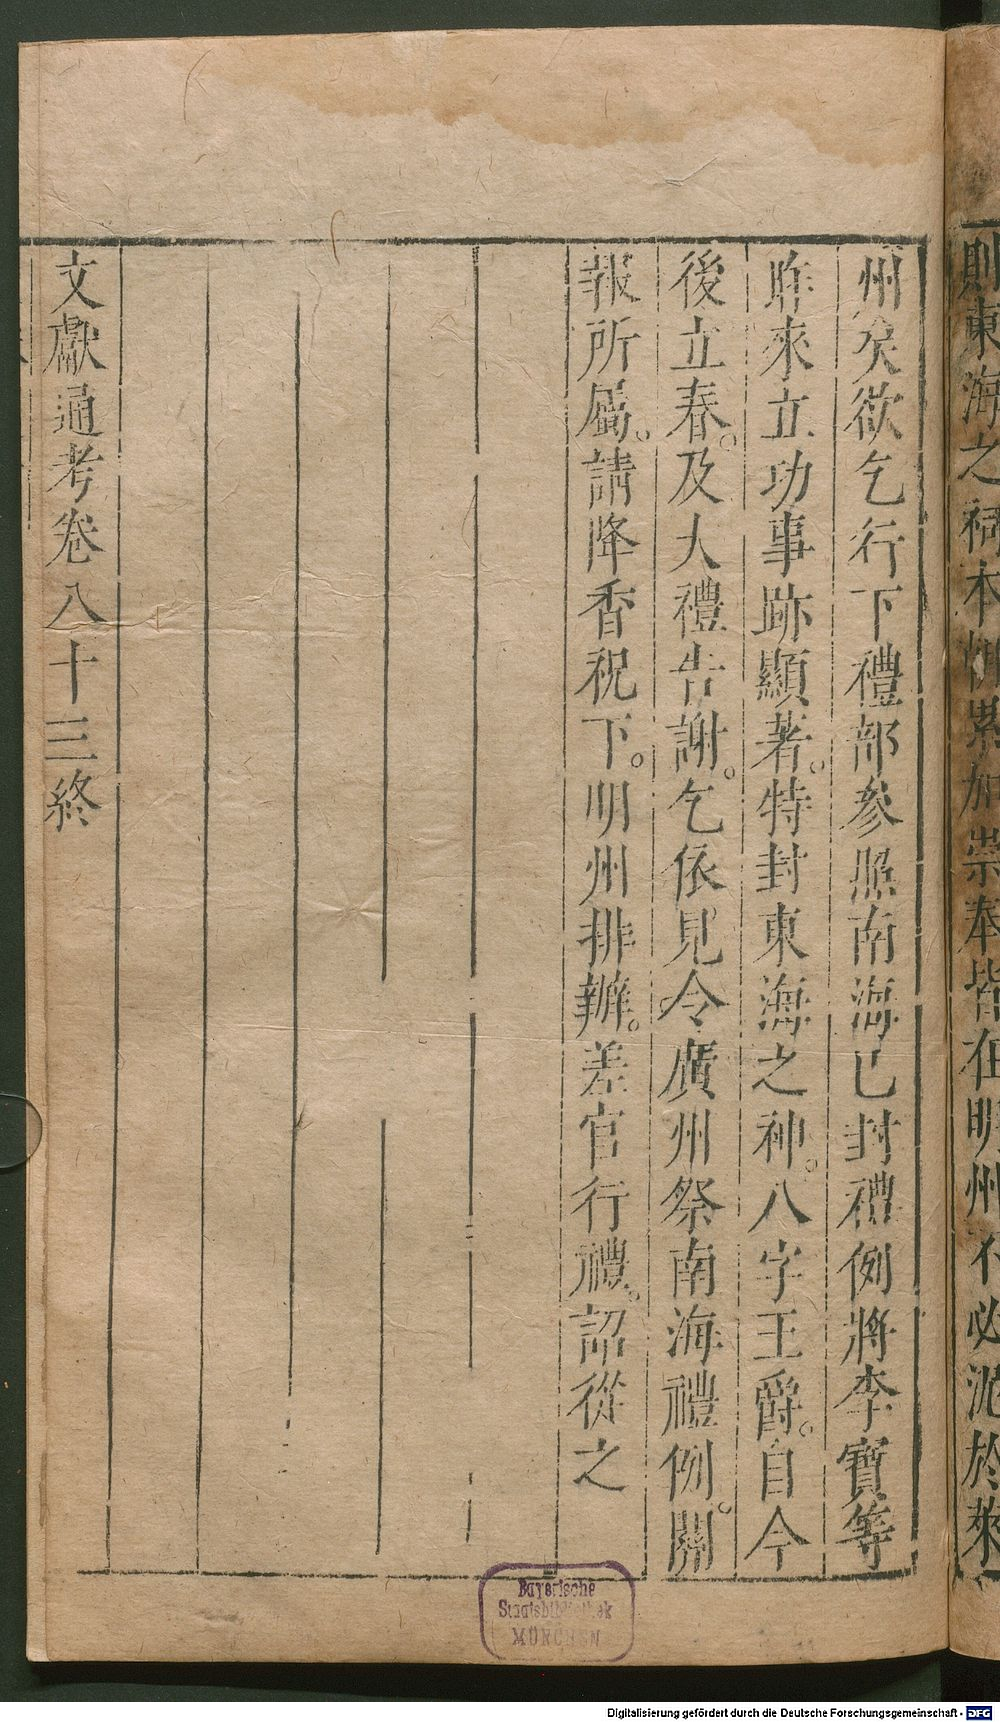 則東海之祠本朝累加崇奉皆在明州不必泥於萊
州矣欲乞行下禮部參照南海已封禮例將李寶等
昨來立功事跡顯著。特封東海之神。八字王爵。自今
後立春。及大禮告謝。乞依見今廣州祭南海禮例。關
報所屬。請降香祝下。明州排辦。差官行禮。詔從之
文獻通考卷八十三終
Bayerische
Staatsbibliothek
MÜNCHEN
Digitalisierung gefördert durch die Deutsche Forschungsgemeinschaft - DFG